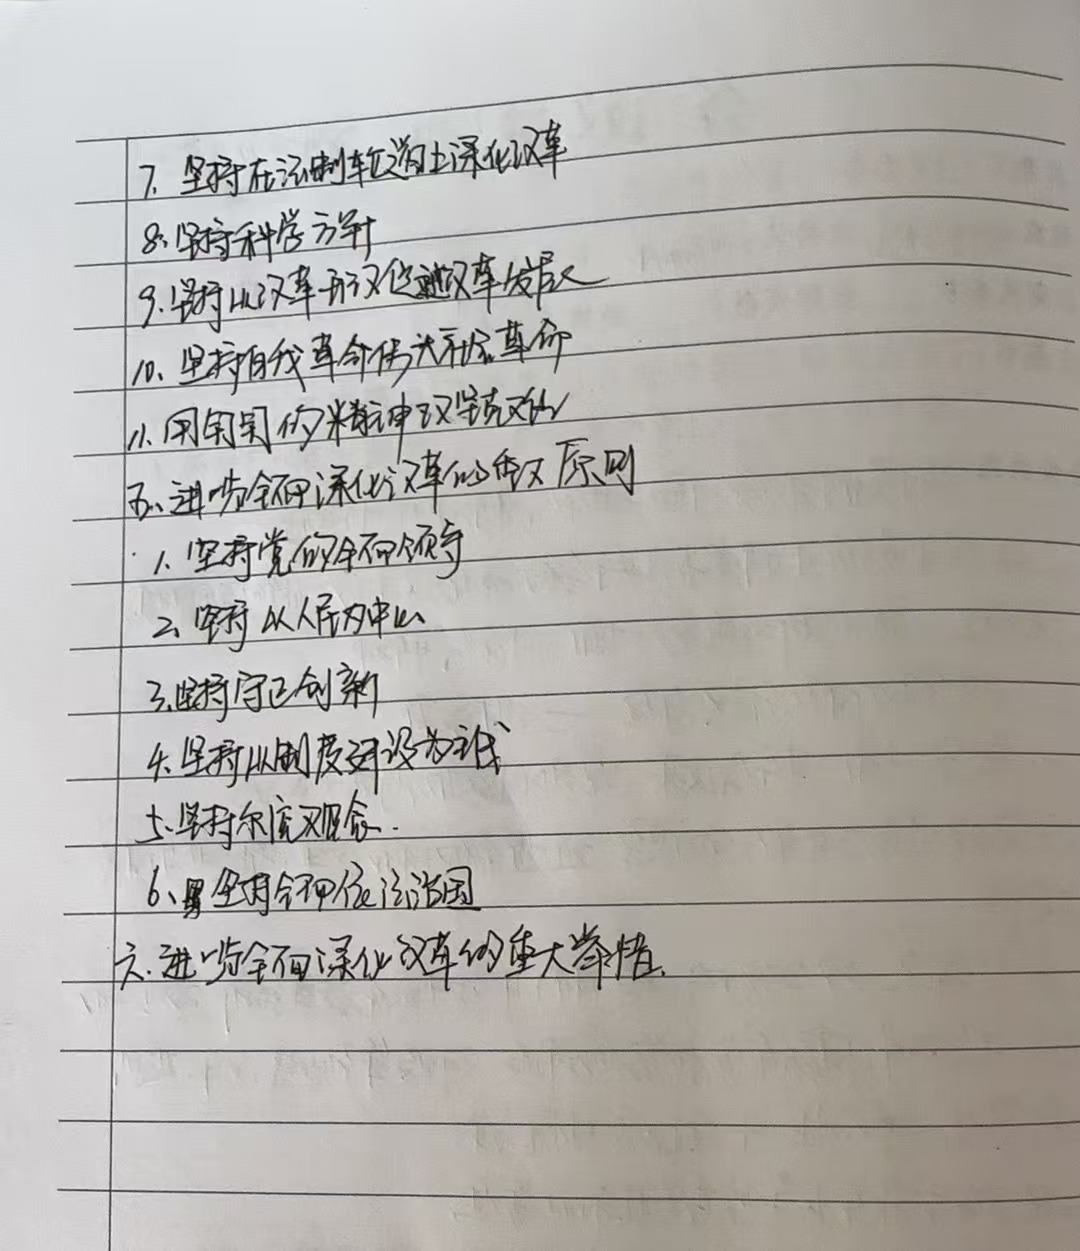 7. 坚持在法制轨道上深化改革
8. 坚持科学方针
9. 坚持以改革开放促进改革发展
10. 坚持自我革命 伟大社会革命
11. 用钉钉的精神攻坚克难
五、进一步全面深化改革的重大原则
1. 坚持党的全面领导
2. 坚持以人民为中心
3. 坚持守正创新
4. 坚持以制度建设为主线
5. 坚持系统观念.
6、坚持全面依法治国
六. 进一步全面深化改革的重大举措.